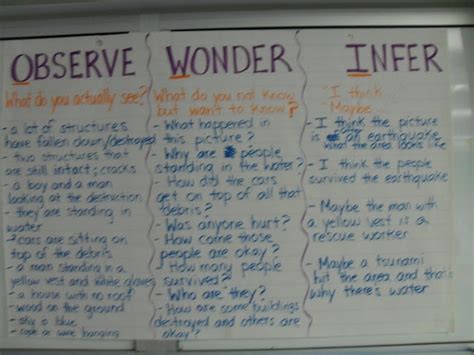 OBSERVE
What do you actually see?
- a lot of structures
have fallen down/destroyed
- two structures that
are still intact; cracks
- a boy and a man
looking at the destruction
- they are standing in
water
- 2 cars are sitting on
top of the debris
- a man standing in a
yellow vest and white gloves
- a house with no roof
- wood on the ground
- sky is blue
- rope or wire hanging
WONDER
What do you not know
but want to know?
- What happened in
this picture?
- Why are people
standing in the water?
- How did the cars
get on top of all that
debris?
- Was anyone hurt?
- How come those
people are okay?
- How many people
survived?
- Who are they?
- How are some buildings
destroyed and others are
okay?
INFER
I think
Maybe
- I think the picture
is earthquake
what the area looks like
- I think the people
survived the earthquake
- Maybe the man with
a yellow vest is a
rescue worker
- Maybe a tsunami
hit the area and that's
why there's water